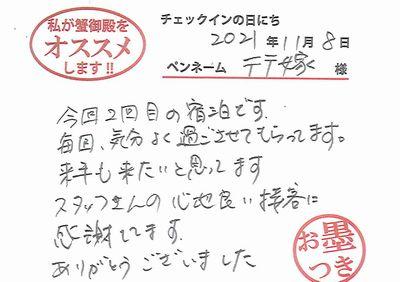 私が蟹御殿を
オススメ
します!!
チェックインの日にち
2021年11月8日
ペンネーム テテ嫁 様
今回2回目の宿泊です.
毎回、気分よく過ごさせてもらってます。
来年も来たいと思ってます
スタッフさんの心地良い接客に
感謝してます.
ありがとうございました
お墨
つき